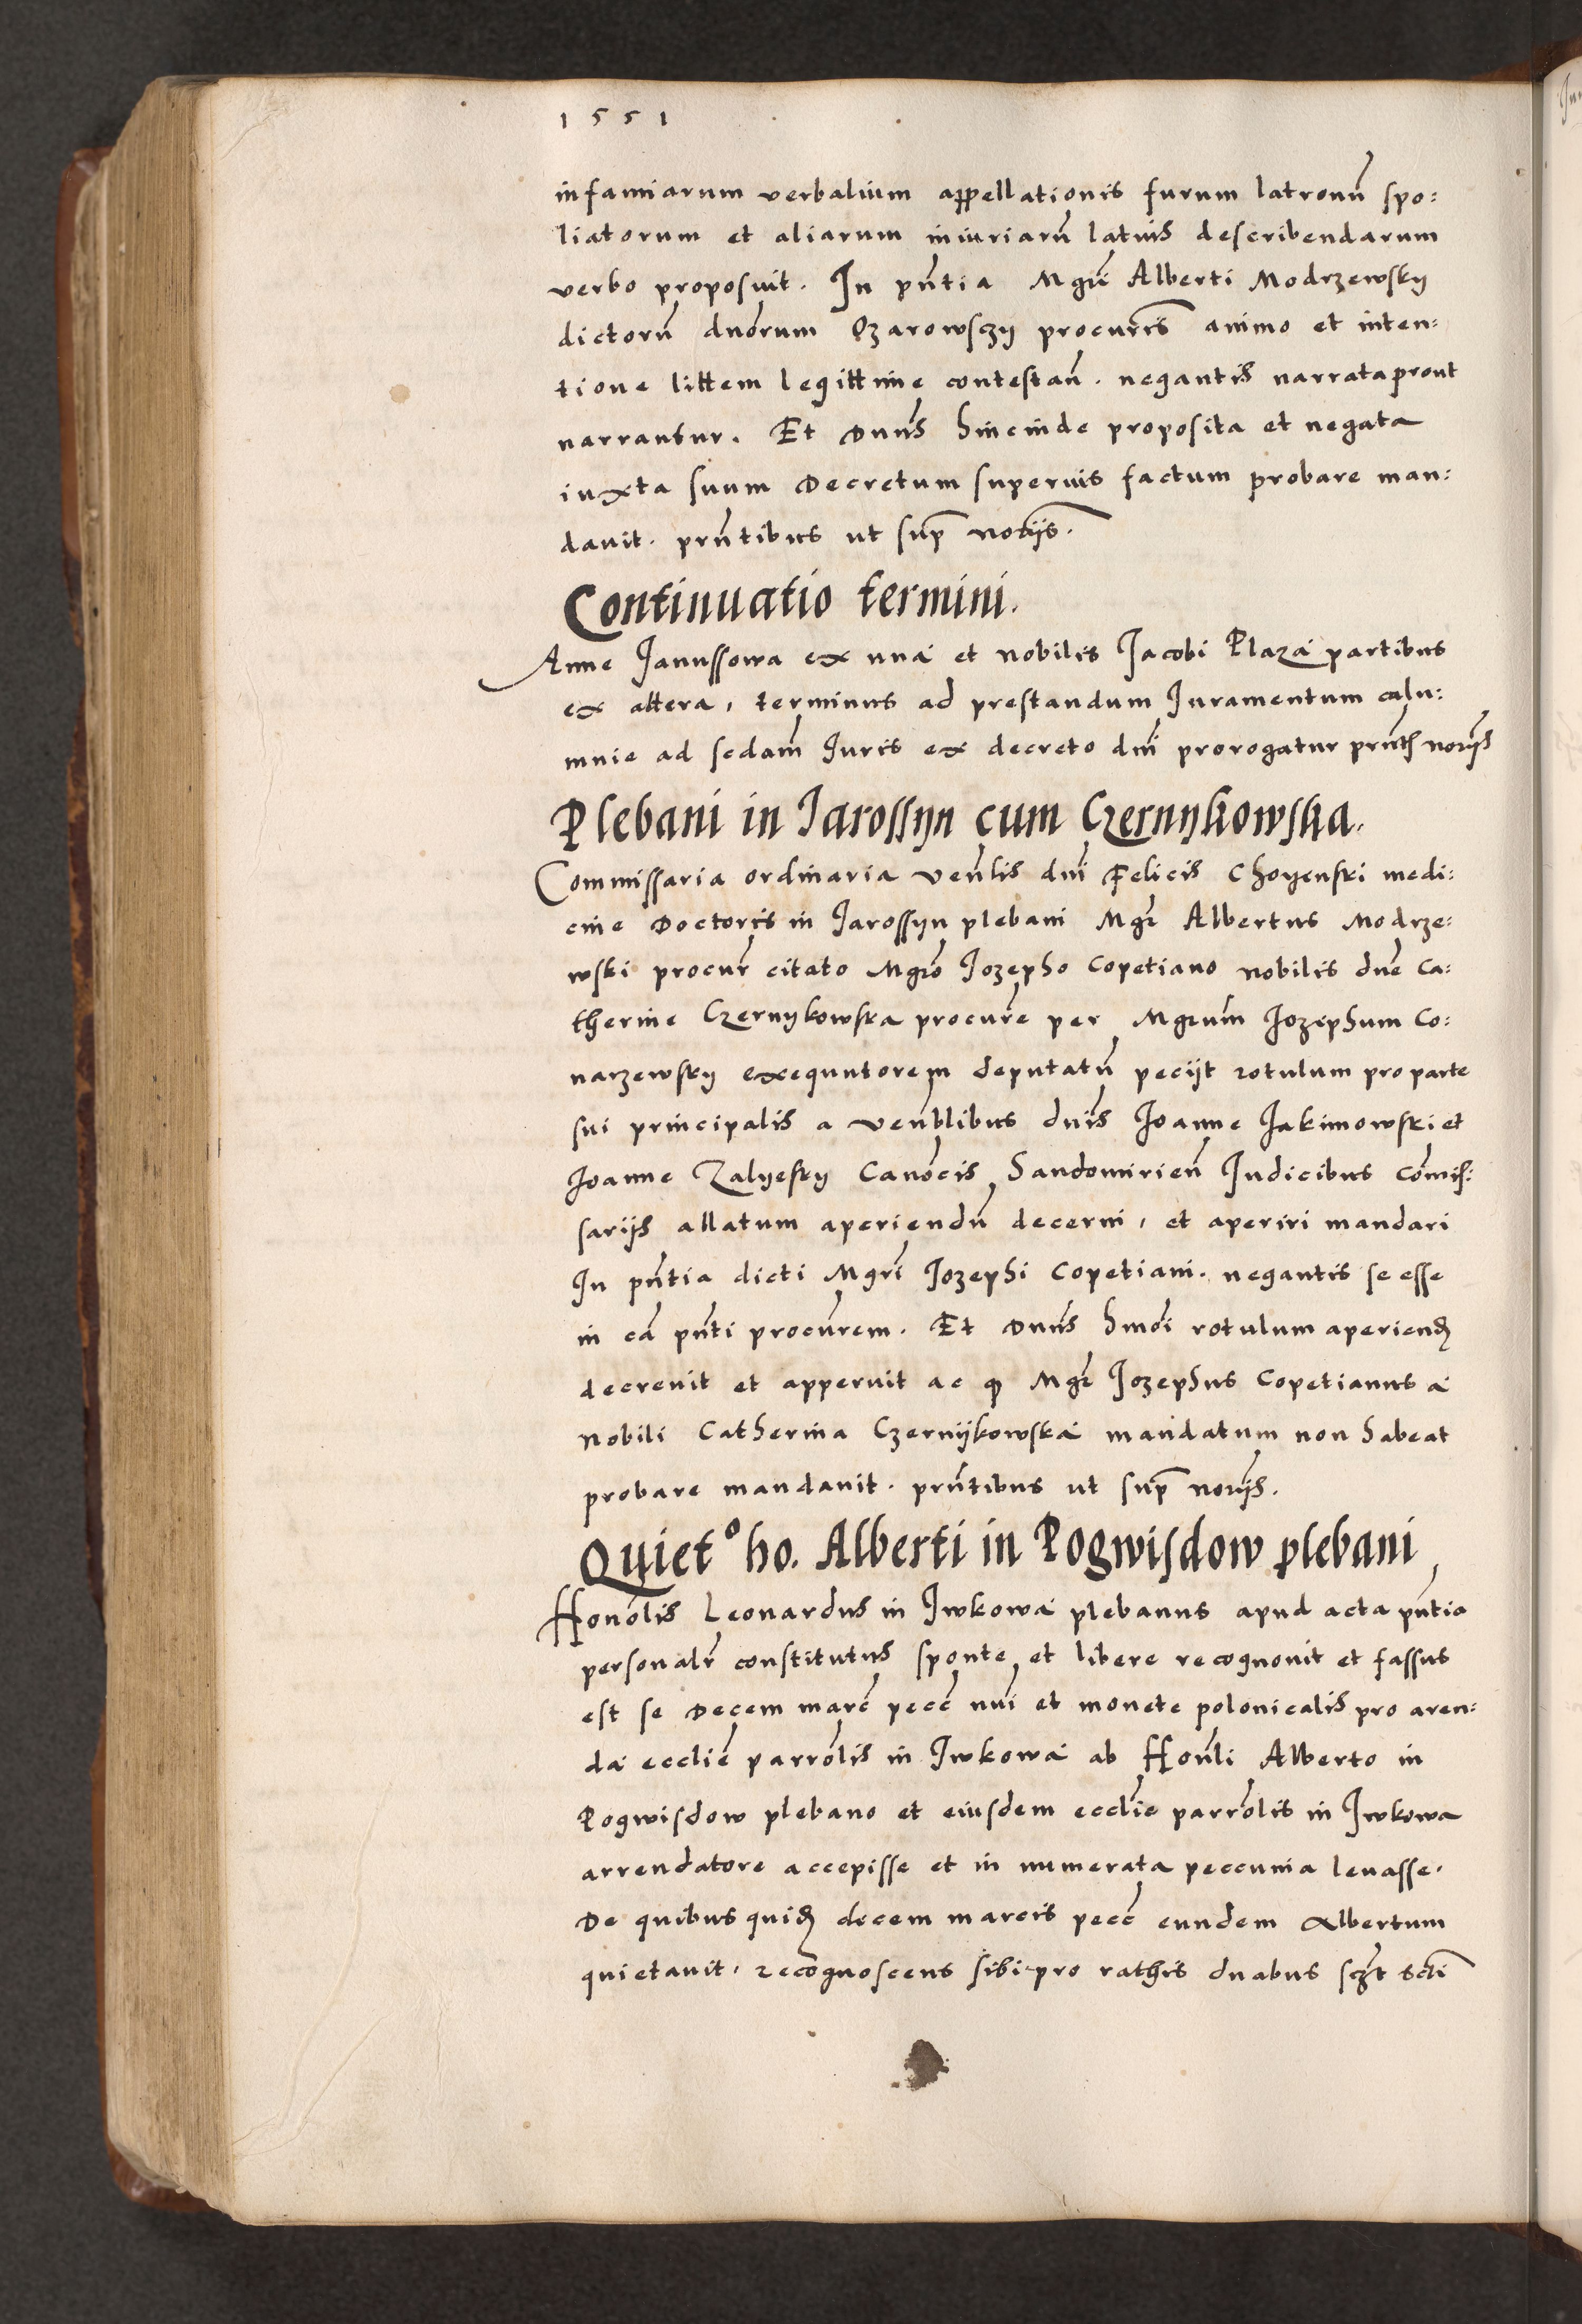 1551
infamiarum verbalium appellationis furum latronũ spo:
liatorum et aliarum iniuriarũ latius describendarum
verbo proposuit. In pñtia Mgri Alberti Modrzewsky
dictorũ dnorum Ozarowsczy procuris animo et inten:
tione littem legittime contestañ. negantis narrata prout
narrantur. Et Dnũs hincinde proposita et negata
iuxta suum Decretum superius factum probare man:
davit. prñtibus ut sup̃ notijs.
Continuatio termini.
Anne Janussowa ex una et nobilis Jacobi Plaza partibus
ex altera, terminus ad prestandum Juramentum calu:
mnie ad sedam̃ Juris ex decreto dni prorogatur prñtibus notijs
Plebani in Jarossyn cum Czernykowska.
Commissaria ordinaria veñlis dni Felicis Choyenski medi:
cine Doctoris in Jarossyn plebani Mgr Albertus Modrze:
wski procur citato Mgro Jozepho Copetiano nobilis dne Ca:
therine Czernykowska procure per Mgrum Jozephum Co:
narzewsky exequutorem deputatũ pecijt rotulum pro parte
sui principalis a veñblibus dnis Joanne Jakimowski et
Joanne Zalyesky Canocis Sandomirieñ Judicibus Comis:
sarijs allatum aperiendũ decerni, et aperiri mandari
In pñtia dicti Mgri Jozephi Copetiani. negantis se esse
in cã pñti procurem. Et Dnũs hmoi rotulum aperiend
decrevit et apperuit ac q Mgr Jozephus Copetianus a
Nobili Catherina Czernykowska mandatum non habeat
probare mandavit. prñtibus ut sup̃ notijs.
Quiet° ho. Alberti in Pogwisdow plebani
Honolis Leonardus in Iwkowa plebanus apud acta pñtia
personalr constitutus sponte et libere recognovit et fassus
est se Decem marc pecc nũi et monete polonicalis pro aren:
da ecclie parrolis in Iwkowa ab Honli Alberto in
Pogwisdow plebano et eiusdem ecclie parrolis in Iwkowa
arrendatore accepisse et in numerata peccunia levasse.
De quibus quid decem marcis pecc eundem Albertum
quietavit, recognoscens sibi pro rathis duabus sczt scti